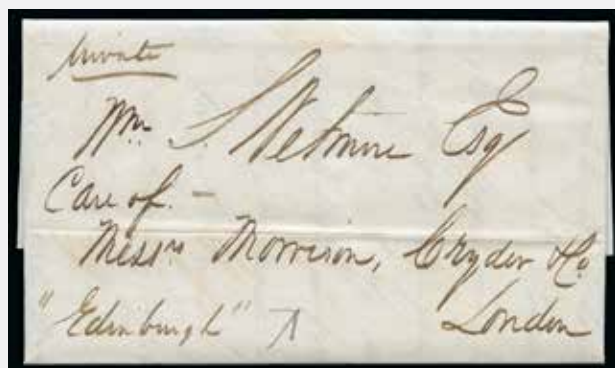 Private
Wm. S. Wetmore Esq
Care of. —
Messrs Morrison, Cryder & Co
"Edinburgh" London